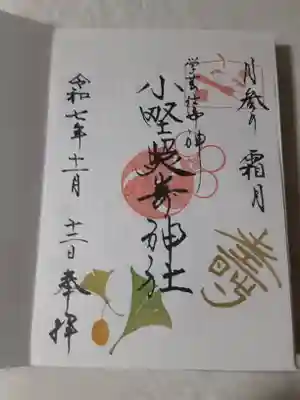 月参り 霜月
小野照崎神社
令和七年十一月 十二日 奉拝